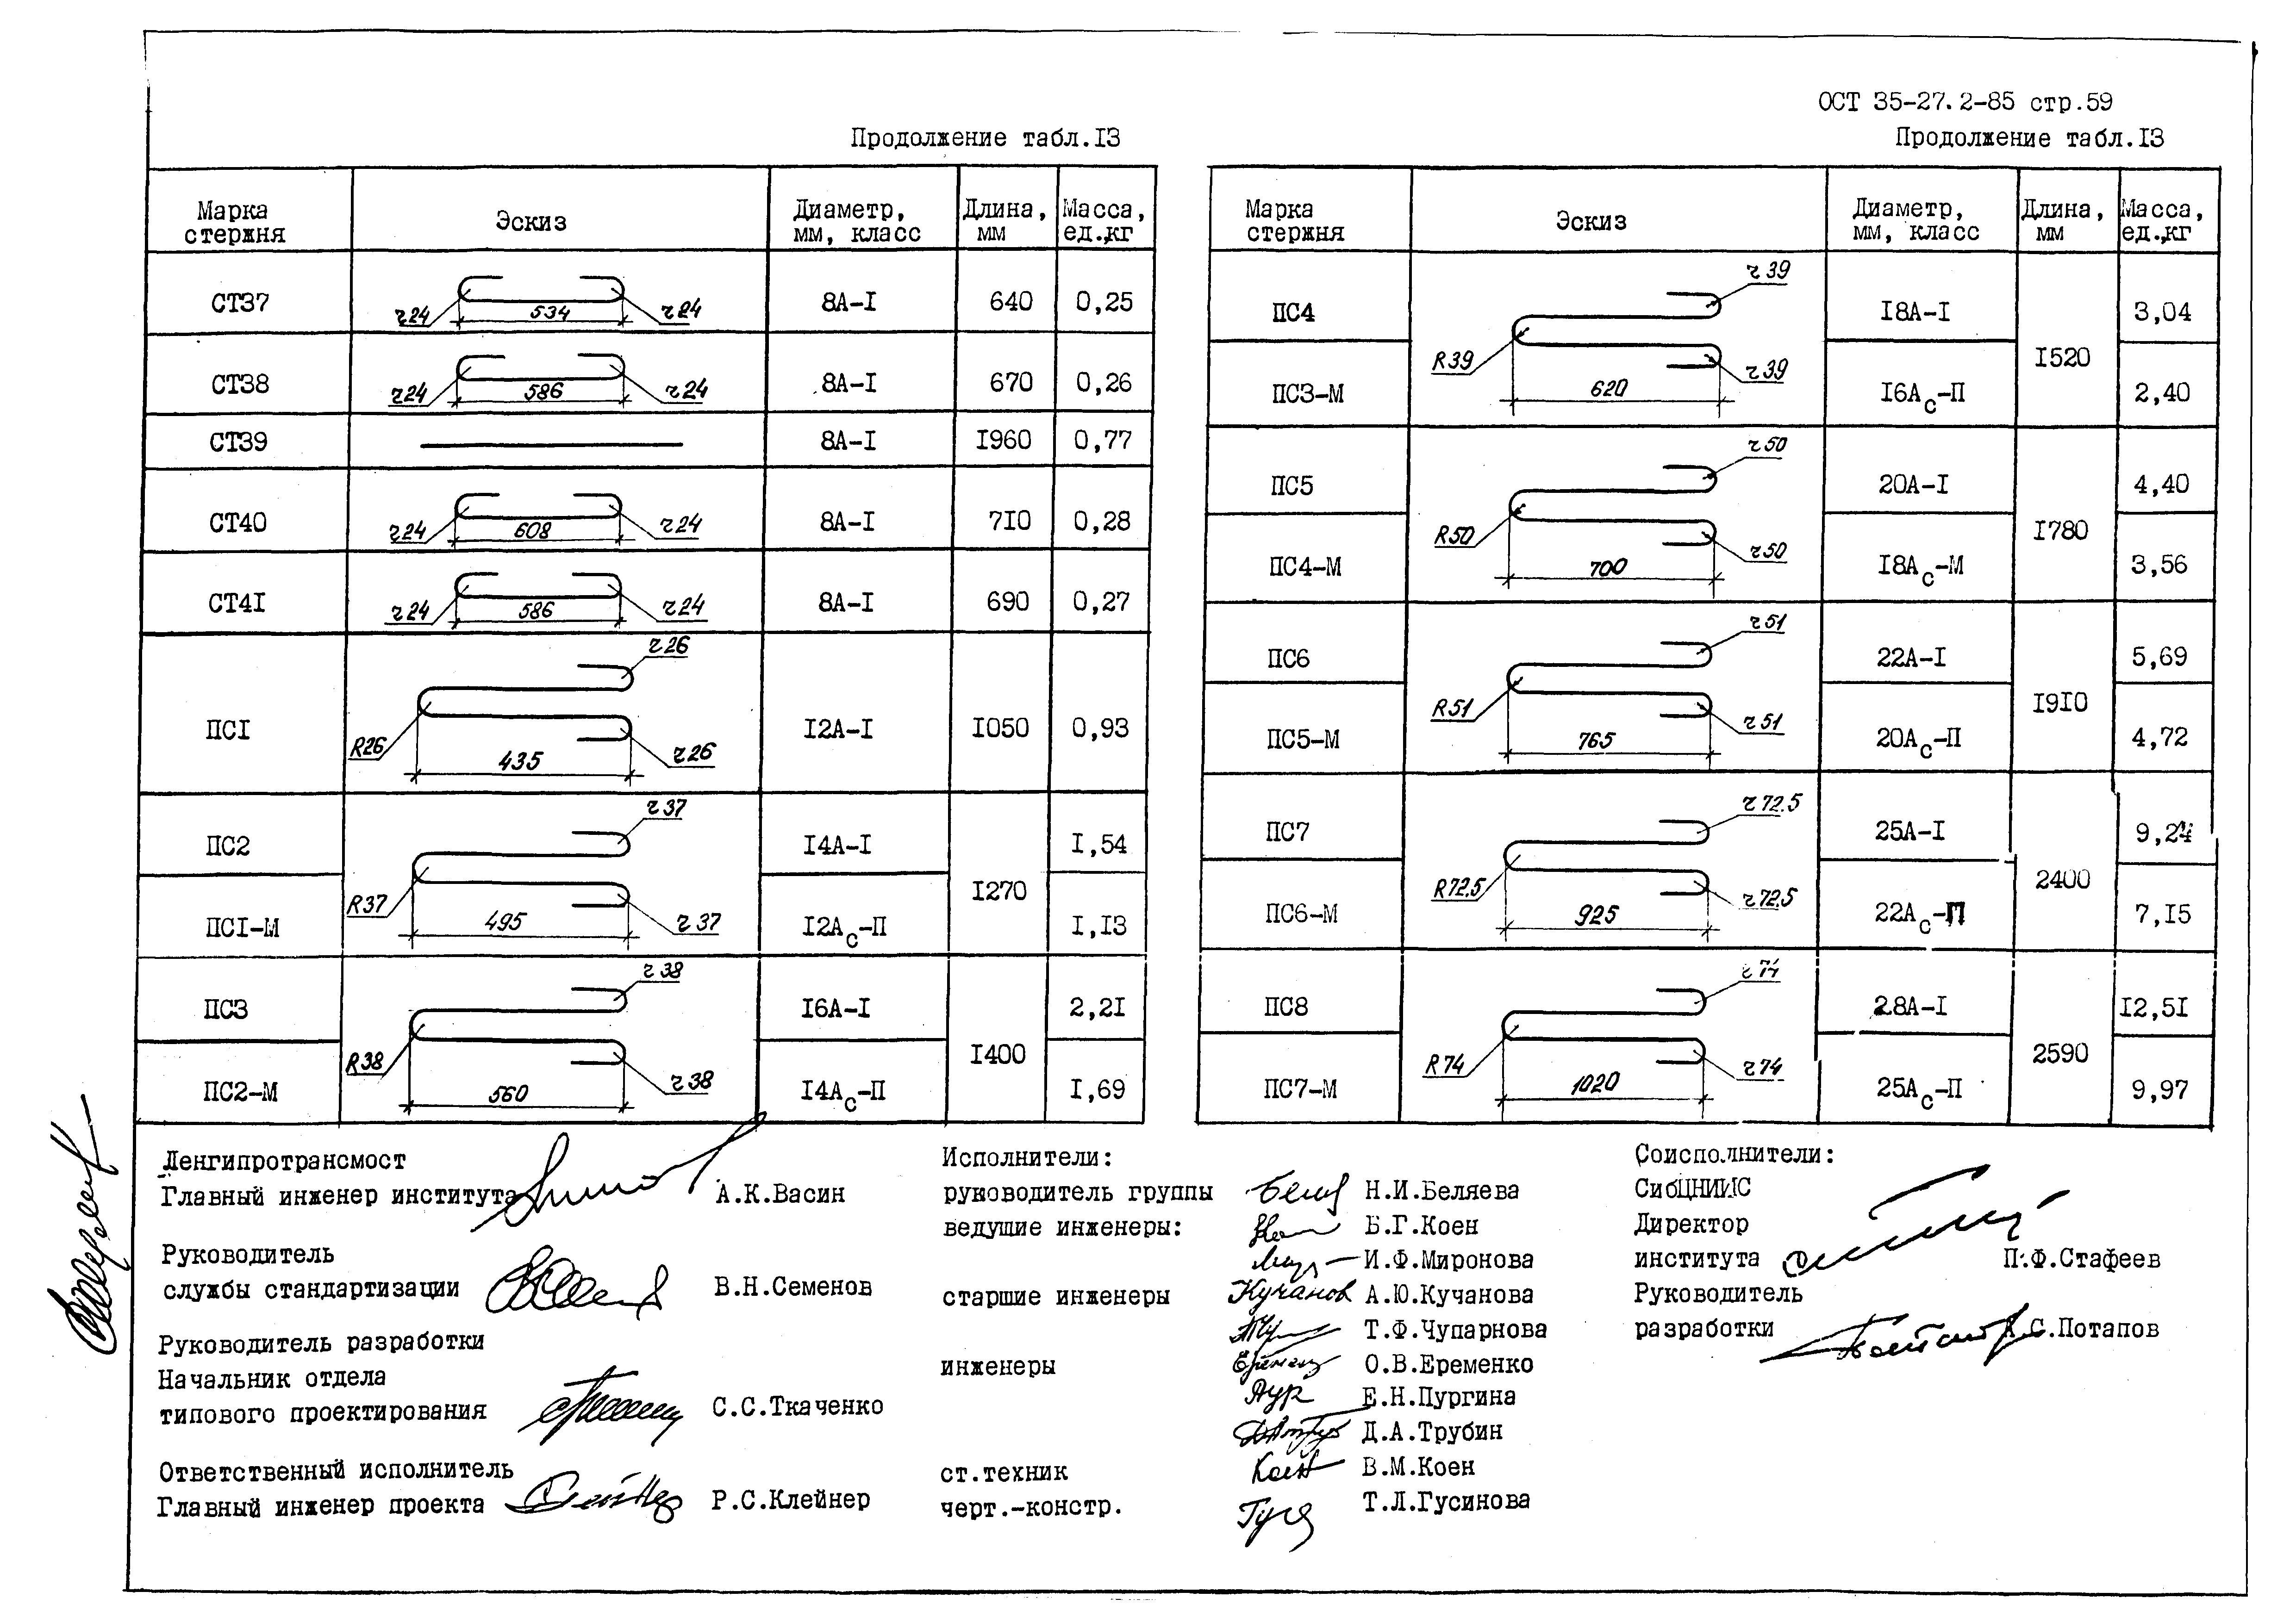 ОСТ 35-27.2-85 стр.59
Продолжение табл.13
Марка стержня
Эскиз
Диаметр, мм, класс
Длина, мм
Масса, ед.,кг
СТ37
r24
534
r24
8А-I
640
0,25
СТ38
r24
586
r24
8А-I
670
0,26
СТ39
8А-I
1960
0,77
СТ40
r24
608
r24
8А-I
710
0,28
СТ41
r24
586
r24
8А-I
690
0,27
ПС1
r26
R26
435
r26
12А-I
1050
0,93
ПС2
r37
14А-I
1,54
R37
495
r37
1270
ПС1-М
12Ас-П
1,13
ПС3
r38
16А-I
2,21
R38
560
r38
1400
ПС2-М
14Ас-П
1,69
Продолжение табл.13
Марка стержня
Эскиз
Диаметр, мм, класс
Длина, мм
Масса, ед.,кг
ПС4
r39
18А-I
3,04
R39
620
r39
1520
ПС3-М
16Ас-П
2,40
ПС5
r50
20А-I
4,40
R50
700
r50
1780
ПС4-М
18Ас-М
3,56
ПС6
r51
22А-I
5,69
R51
765
r51
1910
ПС5-М
20Ас-П
4,72
ПС7
r72.5
25А-I
9,24
R72.5
925
r72.5
2400
ПС6-М
22Ас-П
7,15
ПС8
r74
28А-I
12,51
R74
1020
r74
2590
ПС7-М
25Ас-П
9,97
Ленгипротрансмост
Главный инженер института А.К.Васин
Руководитель
службы стандартизации В.Н.Семенов
Руководитель разработки
Начальник отдела
типового проектирования С.С.Ткаченко
Ответственный исполнитель
Главный инженер проекта Р.С.Клейнер
Исполнители:
руководитель группы Н.И.Беляева
ведущие инженеры: Б.Г.Коен
И.Ф.Миронова
старшие инженеры Кучанов А.Ю.Кучанова
Т.Ф.Чупарнова
инженеры О.В.Еременко
Е.Н.Пургина
Д.А.Трубин
ст.техник Коен В.М.Коен
черт.-констр. Т.Л.Гусинова
Соисполнители:
СибЦНИИС
Директор
института П.Ф.Стафеев
Руководитель
разработки С.Потапов